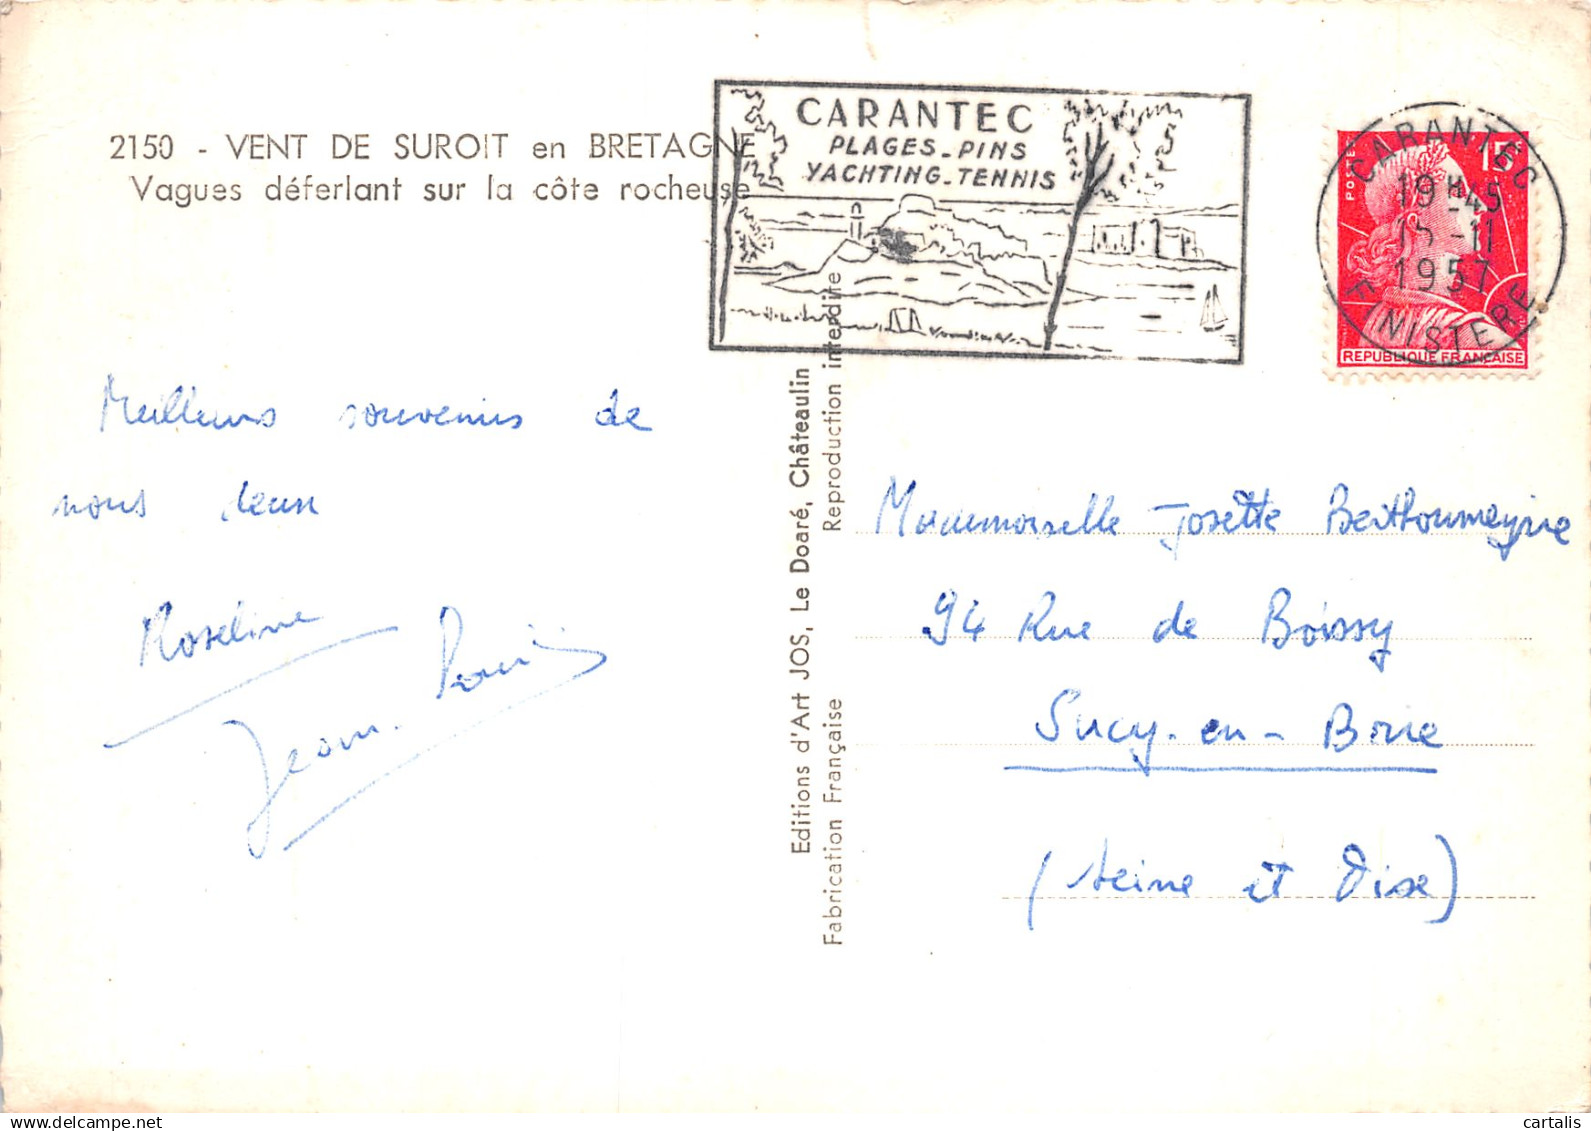 2150 - VENT DE SUROIT en BRETAGNE
Vagues déferlant sur la côte rocheuse
CARANTEC
PLAGES-PINS
YACHTING-TENNIS
15F
POSTE
REPUBLIQUE FRANÇAISE
CARANTEC
19H45
15-11
1957
FINISTERE
Meilleurs souvenirs de
nous deux
Roseline
Jean-
Editions d'Art JOS, Le Doaré, Châteaulin
Fabrication Française Reproduction interdite
Mademoiselle Josette Berthoumeyrie
94 Rue de Boissy
Sucy-en-Brie
(Seine et Oise)
cartalis